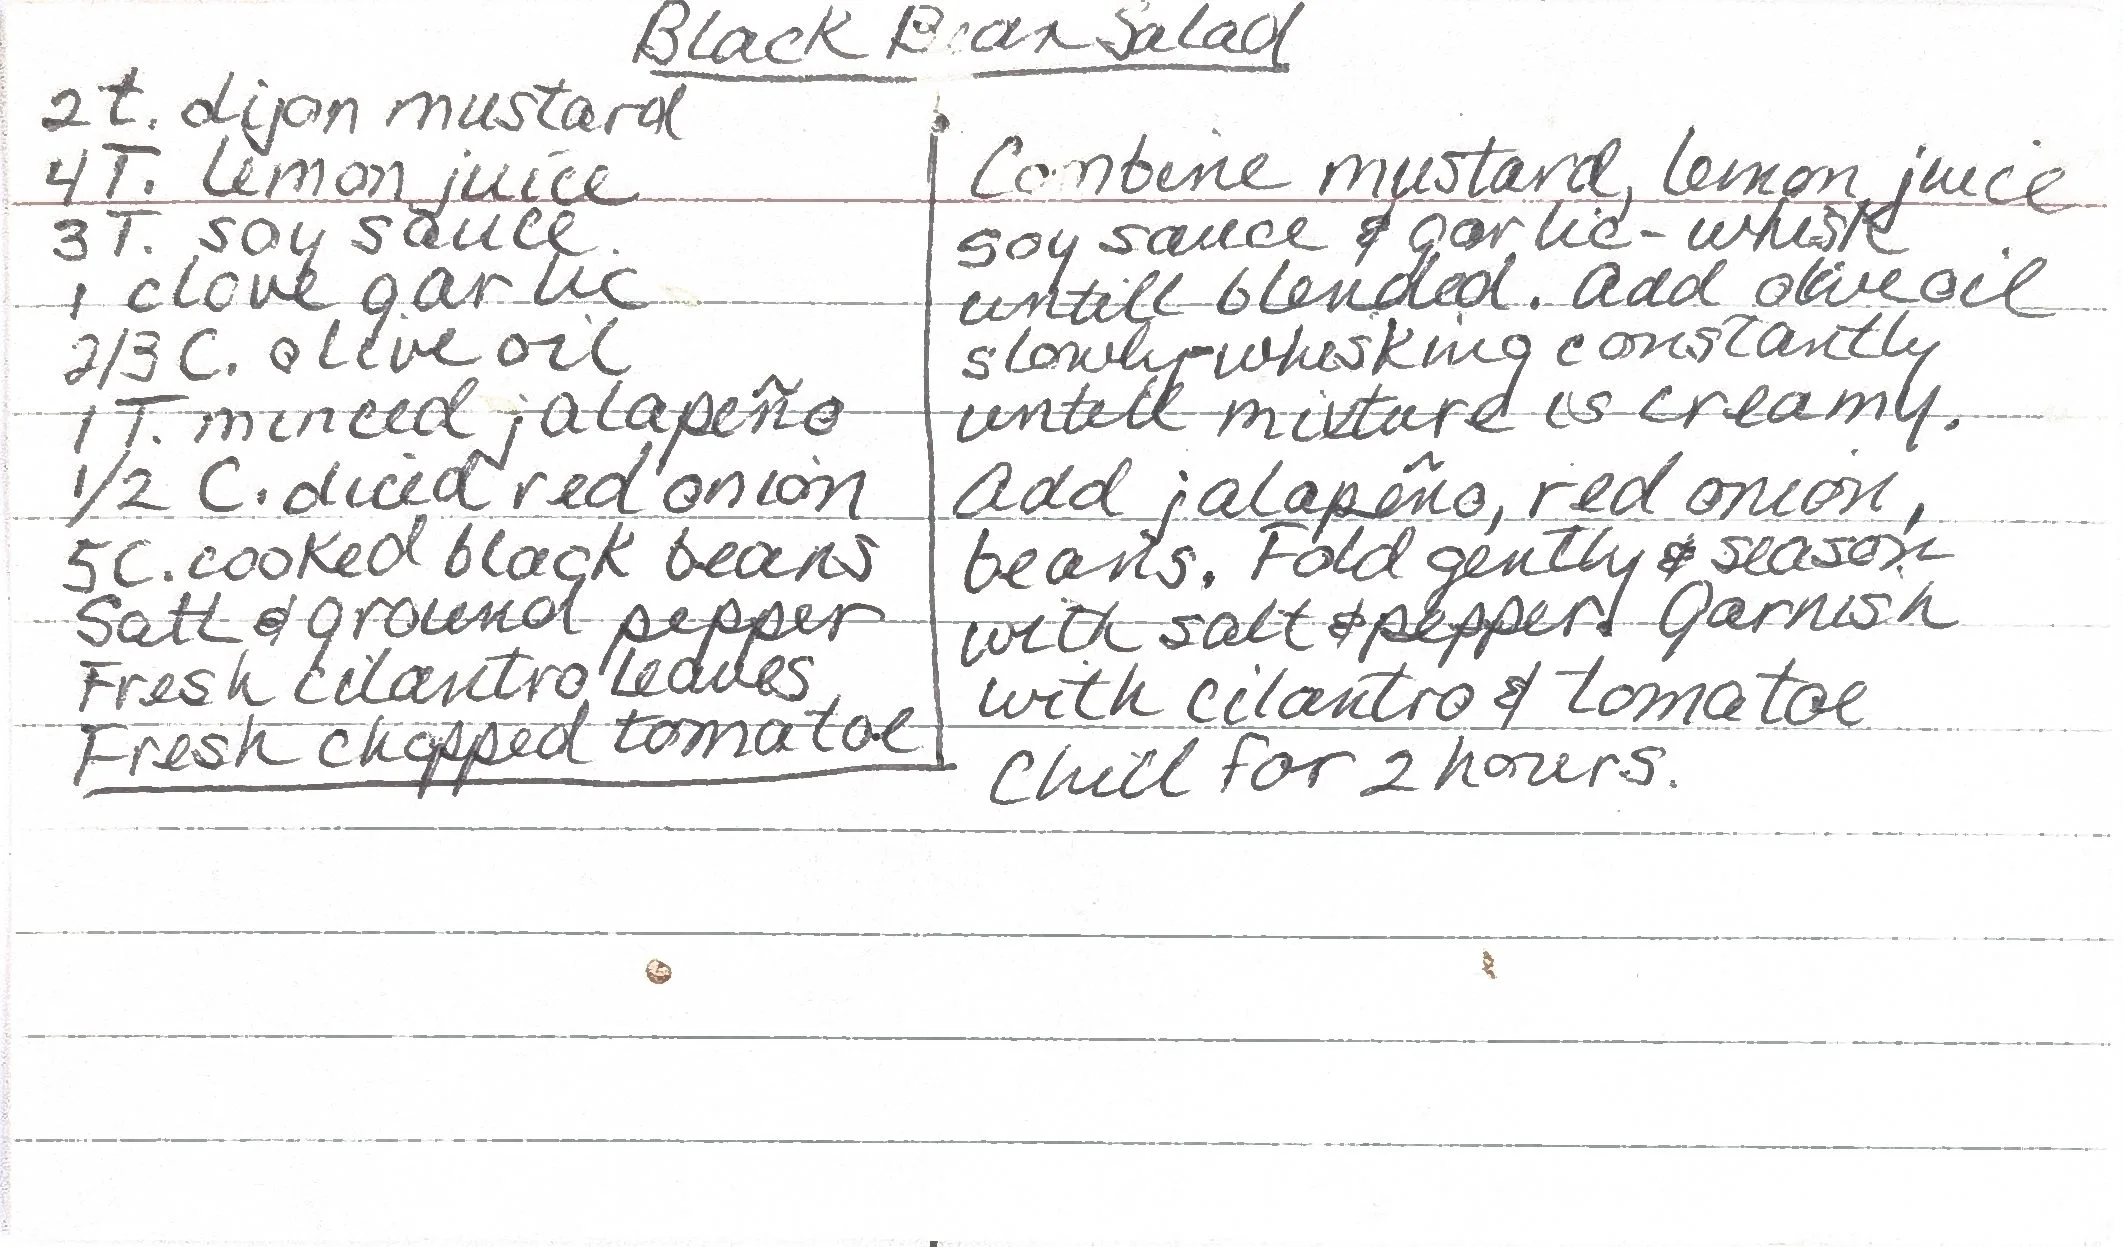 Black Bean Salad
2 t. dijon mustard
4 T. lemon juice
3 T. soy sauce.
1 clove garlic
2/3 C. olive oil
1 T. minced jalapeño
1/2 C. diced red onion
5 C. cooked black beans
Salt & ground pepper
Fresh cilantro leaves
Fresh chopped tomatoe
Combine mustard, lemon juice
soy sauce & garlic - whisk
untill blended. Add olive oil
slowly-whisking constantly
untill mixture is creamy.
Add jalapeño, red onion,
beans. Fold gently & season
with salt & pepper. Garnish
with cilantro & tomatoe
Chill for 2 hours.